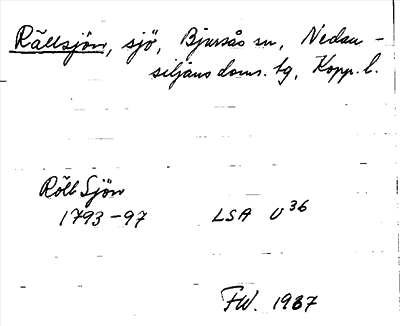 Rällsjön, sjö, Bjursås sn, Nedan-
siljans doms. tg, Kopp. l.
Röll Sjön
1793-97 LSA U36
FW. 1937